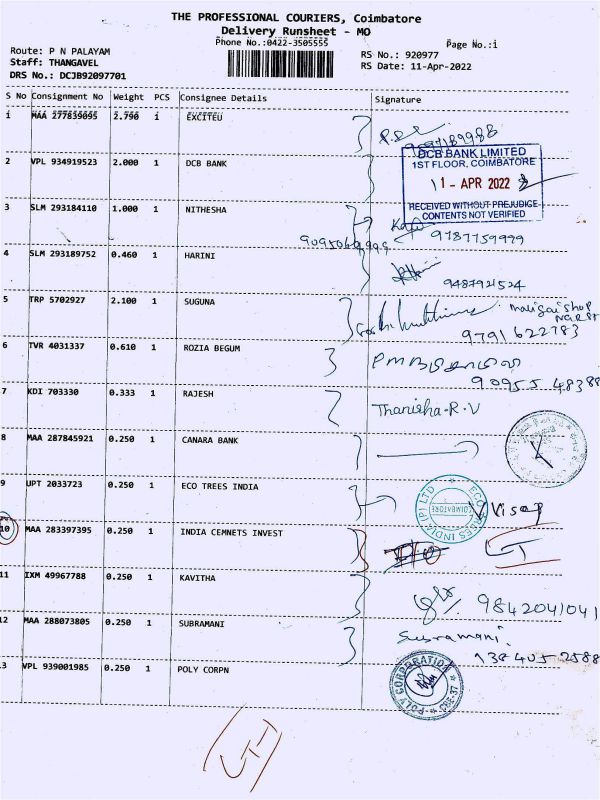 THE PROFESSIONAL COURIERS, Coimbatore
Delivery Runsheet - MO
Phone No.:0422-3505555
Page No.:1
Route: P N PALAYAM
RS No.: 920977
Staff: THANGAVEL
RS Date: 11-Apr-2022
DRS No.: DCJB92097701
S No Consignment No Weight PCS Consignee Details Signature
1 MAA 277839095 2.790 1 EXCITEU
2 VPL 934919523 2.000 1 DCB BANK
DCB BANK LIMITED
1ST FLOOR, COIMBATORE
11 - APR 2022
RECEIVED WITHOUT PREJUDICE
CONTENTS NOT VERIFIED
3 SLM 293184110 1.000 1 NITHESHA
9787759999
4 SLM 293189752 0.460 1 HARINI
9487921524
5 TRP 5702927 2.100 1 SUGUNA
9791622783
6 TVR 4031337 0.610 1 ROZIA BEGUM
90955 48388
7 KDI 703330 0.333 1 RAJESH Thanisha-R.V
8 MAA 287845921 0.250 1 CANARA BANK
9 UPT 2033723 0.250 1 ECO TREES INDIA
ECO TREES INDIA (P) LTD
COIMBATORE
10 MAA 283397395 0.250 1 INDIA CEMNETS INVEST
11 IXM 49967788 0.250 1 KAVITHA
9842041041
12 MAA 288073805 0.250 1 SUBRAMANI
Subramani.
13 VPL 939001985 0.250 1 POLY CORPN
POLY CORPORATION
CBE-37